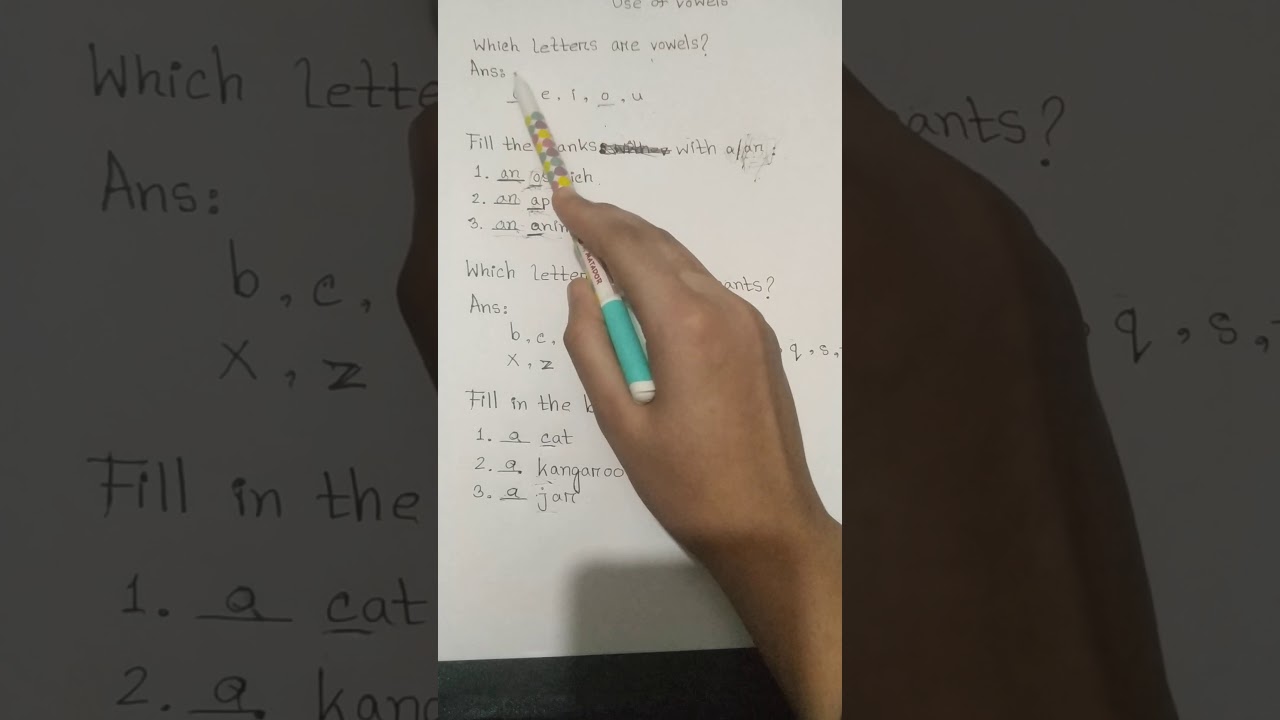 Use of Vowels
Which letters are vowels?
Ans:
e, i, o, u
Fill the with a/an:
1. an
2. an
3. an
Which
Ans:
b, c,
q, s,
x, z
Fill in the
1. a cat
2. a kangaroo
3. a jar